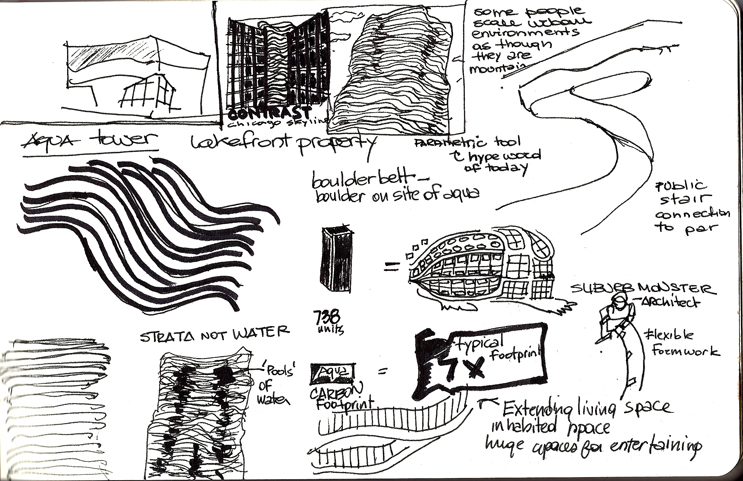 some people
scale urban
environments
as though
they are
mountain
CONTRAST
chicago skyline
Aqua tower
Lakefront property
PARAMETRIC tool
hype word
of today
boulderbelt —
boulder on site of aqua
Public
stair
connection
to par
=
738
units
SUBURB MONSTER
Architect
Flexible
formwork
STRATA NOT WATER
'Pools'
of
water
Aqua
=
typical
footprint
7x
CARBON
Footprint
Extending living space
inhabited space
huge spaces for entertaining